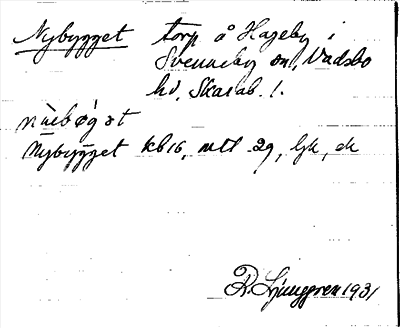 Nybygget torp å Hageby i
Svenneby sn, Vadsbo
hd, Skarab. l.
Nybygget kb 16, mtl 29, ljk, dk
R. Ljunggren 1931